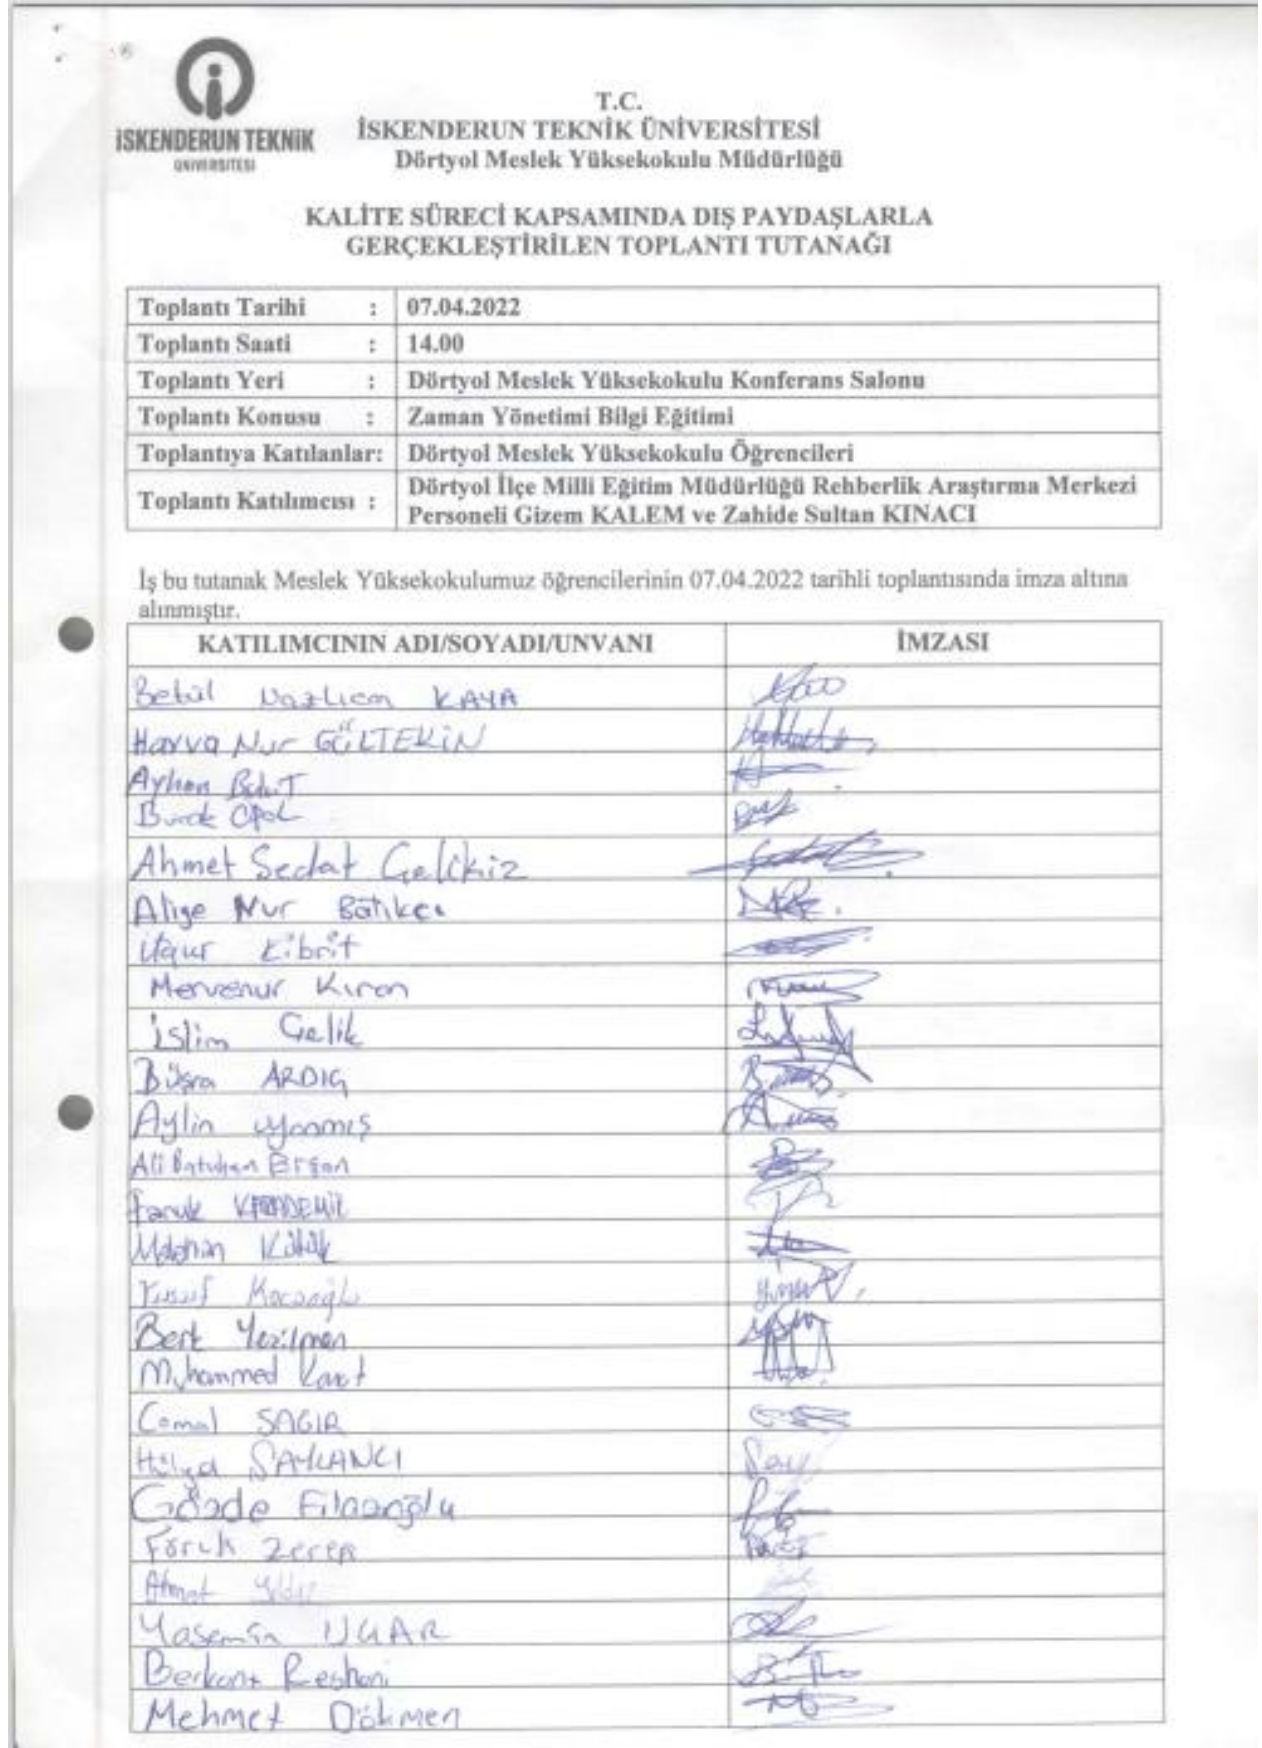 İSKENDERUN TEKNİK
ÜNİVERSİTESİ
T.C.
İSKENDERUN TEKNİK ÜNİVERSİTESİ
Dörtyol Meslek Yüksekokulu Müdürlüğü
KALİTE SÜRECİ KAPSAMINDA DIŞ PAYDAŞLARLA
GERÇEKLEŞTİRİLEN TOPLANTI TUTANAĞI
Toplantı Tarihi : 07.04.2022
Toplantı Saati : 14.00
Toplantı Yeri : Dörtyol Meslek Yüksekokulu Konferans Salonu
Toplantı Konusu : Zaman Yönetimi Bilgi Eğitimi
Toplantıya Katılanlar: Dörtyol Meslek Yüksekokulu Öğrencileri
Toplantı Katılımcısı : Dörtyol İlçe Milli Eğitim Müdürlüğü Rehberlik Araştırma Merkezi
Personeli Gizem KALEM ve Zahide Sultan KINACI
İş bu tutanak Meslek Yüksekokulumuz öğrencilerinin 07.04.2022 tarihli toplantısında imza altına
alınmıştır.
KATILIMCININ ADI/SOYADI/UNVANI İMZASI
Betül Nazlıcan KAYA
Havva Nur GÜLTEKİN
Ayhan
Burak
Ahmet Sedat Çelikiz
Aliye Nur Batıkçı
Uğur Kibrit
Mervenur Kıran
İslim Çelik
Büşra ARDIÇ
Aylin uyanmış
Ali Batuhan
Faruk KARADEMİR
Yusuf Kocaoğlu
Berk Yezilmen
Muhammed
Cemal SAĞIR
Hülya SAYLANCI
Gözde Filazoğlu
Faruk Zeren
Ahmet Yıldız
Yasemin UÇAR
Berkant Reshani
Mehmet Dökmen